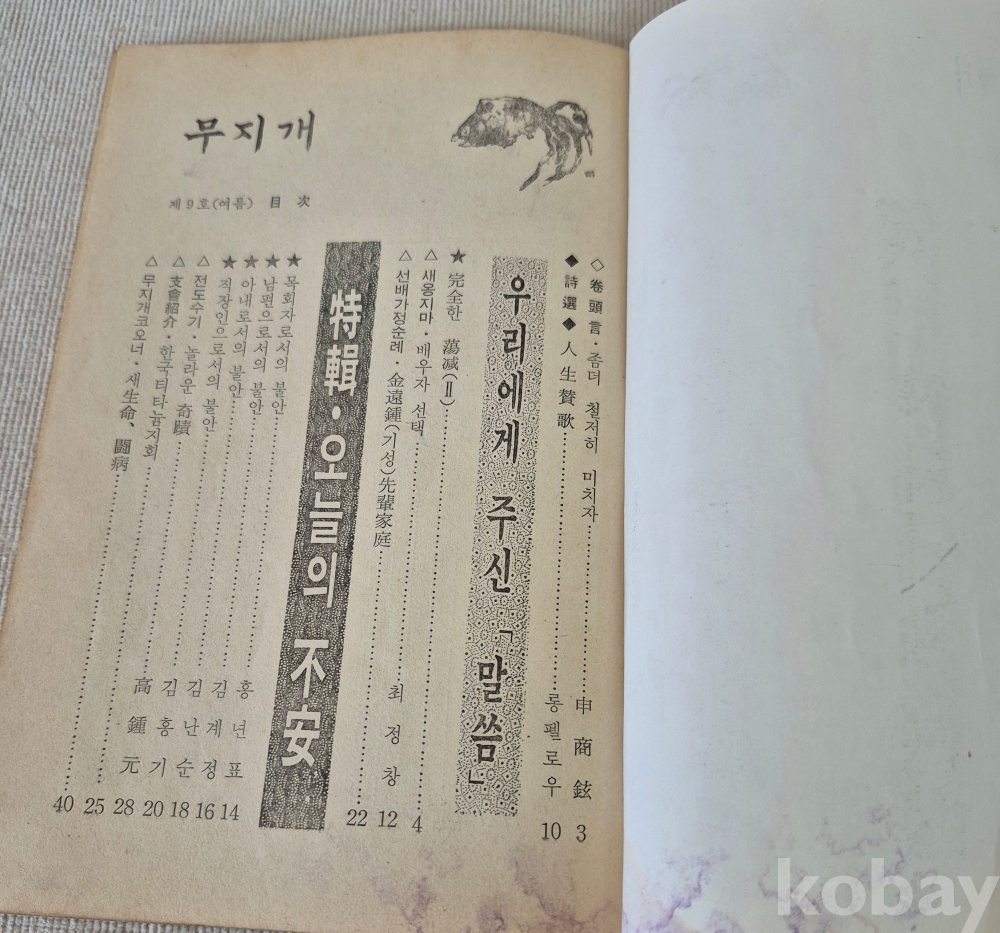 무지개
제9호(여름) 目 次
◇ 卷頭言・좀더 철저히 미치자 申商鉉 3
◆ 詩選 ◆ 人生賛歌 롱펠로우 10
우리에게 주신 「말씀」
★ 完全한 蕩減(Ⅱ) 4
△ 새옹지마・배우자 선택 최정창 12
△ 선배가정순례・金遠鍾(기성)先輩家庭 22
特輯・오늘의 不安
★ 목회자로서의 불안 홍년표 14
★ 남편으로서의 불안 김계정 16
★ 아내로서의 불안 김난순 18
★ 직장인으로서의 불안 김홍기 20
△ 전도수기・놀라운 奇蹟 高鍾元 28
△ 支會紹介・한국티타늄지회 25
△ 무지개코오너・새生命、鬪病 40
kobay